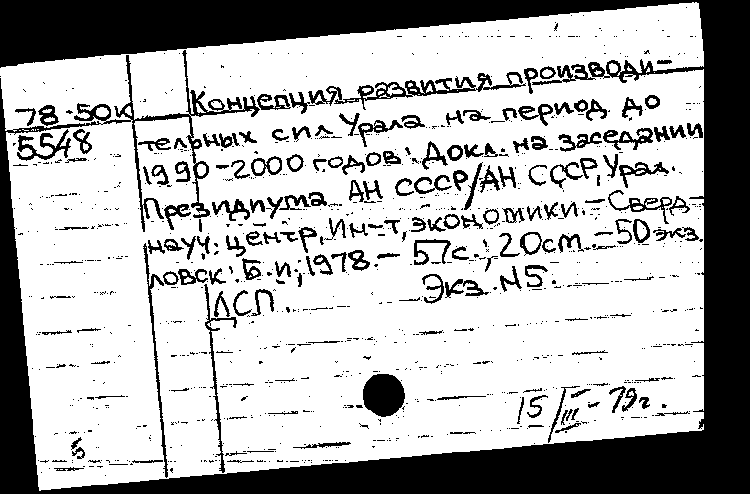 78-50к
5548
Концепция развития производи-
тельных сил Урала на период до
1990-2000 годов: Докл. на заседании
Президиума АН СССР/АН СССР, Урал.
науч. центр, Ин-т, экономики.-Сверд-
ловск: Б.и., 1978.- 57с.; 20cm.-50 экз.
ДСП. Экз. N5.
15/III-79г.
5